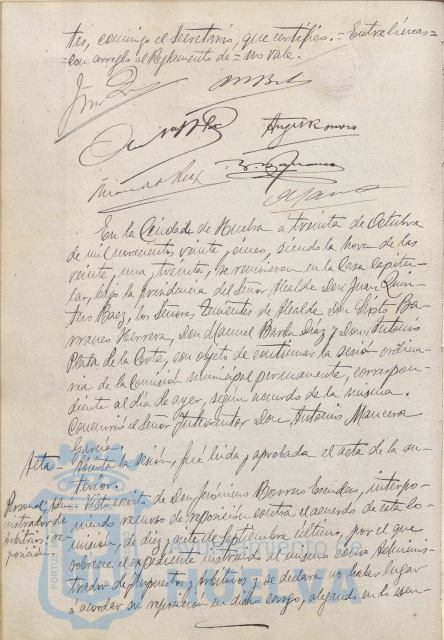 tes, conmigo el Secretario, que certifico.= Entre líneas=
=con arreglo al Reglamento de= no vale.
Angel Romero
En la Ciudad de Huelva a treinta de Octubre
de mil novecientos veinte y cinco, siendo la hora de las
veinte y una y treinta, se reunieron en la Casa Capitu-
lar, bajo la presidencia del Señor Alcalde Don Juan Quin-
tero Baez, los Señores Tenientes de Alcalde Don Sixto Ba-
rranco Herrera, Don Manuel Barba Díaz y Don Antonio
Plata de la Corte, con objeto de continuar la sesión ordina-
ria de la Comisión municipal permanente, correspon-
diente al día de ayer, según acuerdo de la misma.
Concurrió el señor Interventor Don Antonio Mancera
García.
Acta - Abierta la sesión, fué leída y aprobada el acta de la an-
terior.
Personal, Admi-
nistrador de
Arbitrios, re-
posición.
Visto escrito de Don Borrero Escudero, interpo-
niendo recurso de reposición contra el acuerdo de esta Co-
misión, de diez y siete de Septiembre último, por el que
sobresee el expediente instruido al mismo como Adminis-
trador de Impuestos y Arbitrios y se declara no haber lugar
a acordar su reposición en dicho cargo, alegando en lo esen-
PORTUS
Ayuntamiento de
HUELVA